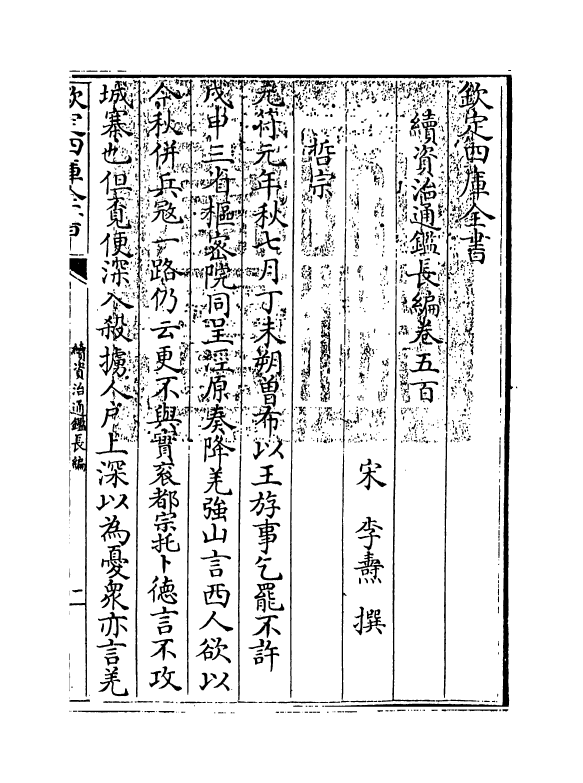 欽定四庫全書
續資治通鑑長編卷五百
宋 李燾 撰
哲宗
元符元年秋七月丁未朔曽布以王斿事乞罷不許
戊申三省樞宻院同呈涇原奏降羌強山言西人欲以
今秋併兵冦一路仍云更不與實衮都宗托卜德言不攻
城寨也但覔便深入殺擄人户上深以為憂衆亦言羌
欽定四庫全書
續資治通鑑長編